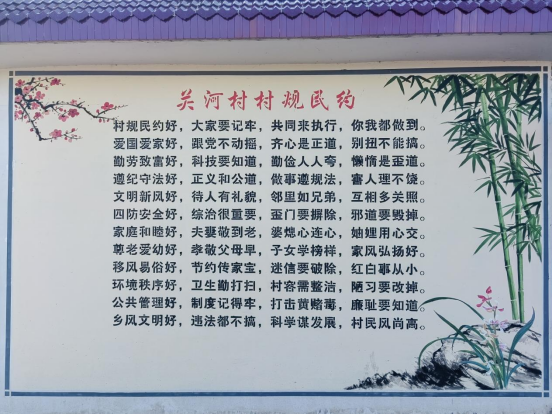 关河村村规民约
村规民约好，大家要记牢，共同来执行，你我都做到。
爱国爱家好，跟党不动摇，齐心是正道，别扭不能搞。
勤劳致富好，科技要知道，勤俭人人夸，懒惰是歪道。
遵纪守法好，正义和公道，做事遵规法，害人理不饶。
文明新风好，待人有礼貌，邻里如兄弟，互相多关照。
四防安全好，综治很重要，歪门要摒除，邪道要毁掉。
家庭和睦好，夫妻敬到老，婆媳心连心，妯娌用心交。
尊老爱幼好，孝敬父母早，子女学榜样，家风弘扬好。
移风易俗好，节约传家宝，迷信要破除，红白事从小。
环境秩序好，卫生勤打扫，村容需整洁，陋习要改掉。
公共管理好，制度记得牢，打击黄赌毒，廉耻要知道。
乡风文明好，违法都不搞，科学谋发展，村民风尚高。